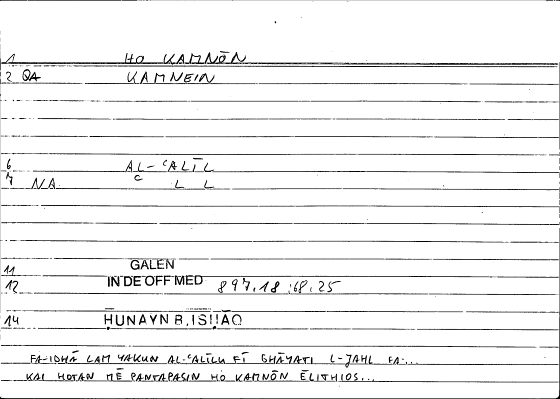 1 HO KAMNŌN
2 QA KAMNEIN
6 AL-ʿALĪL
7 NA ʿ L L
11 GALEN
12 IN DE OFF MED 897.18 :68.25
14 ḤUNAYN B. ISḤĀQ
FA-IDHĀ LAM YAKUN AL-ʿALĪLU FĪ GHĀYATI L-JAHL FA-...
KAI HOTAN MĒ PANTAPASIN HO KAMNŌN ĒLITHIOS...